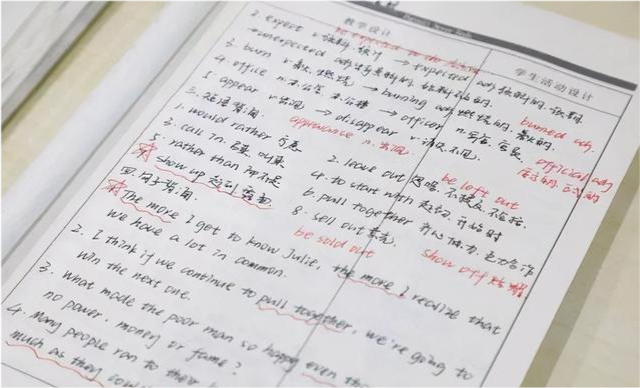 教学设计
学生活动设计
be expected to do
2. expect v.预料,预计 → expected adj.预料的,预期
→ unexpected adj.
3. burn v.着火,燃烧 → burning adj.燃烧的,着火的. burned adj.
4. office n. 办公室 → officer n.军官,官员. official adj.
5. appear v.出现 → disappear v.消失,不见.
appearance n. 出现
三. 短语背诵
1. would rather 宁愿
2. leave out be left out
3. call in 召来
4. to start with 起初,开始时
5. rather than 而不是
6. pull together 齐心协力,
show up 赶到 露面
8. sell out 售完 show off
be sold out
四. 句子背诵
The more I get to know Julie, the more I realize that
we have a lot in common.
2. I think if we continue to pull together, we're going to
win the next one.
3. What made the poor man so happy even
no power, money or fame?
4. Many people ran to their
much as they could